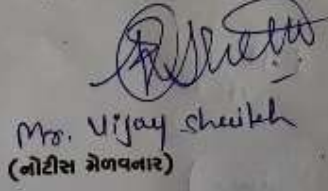 Mr. Vijay Sheikh
(નોટીસ મેળવનાર)